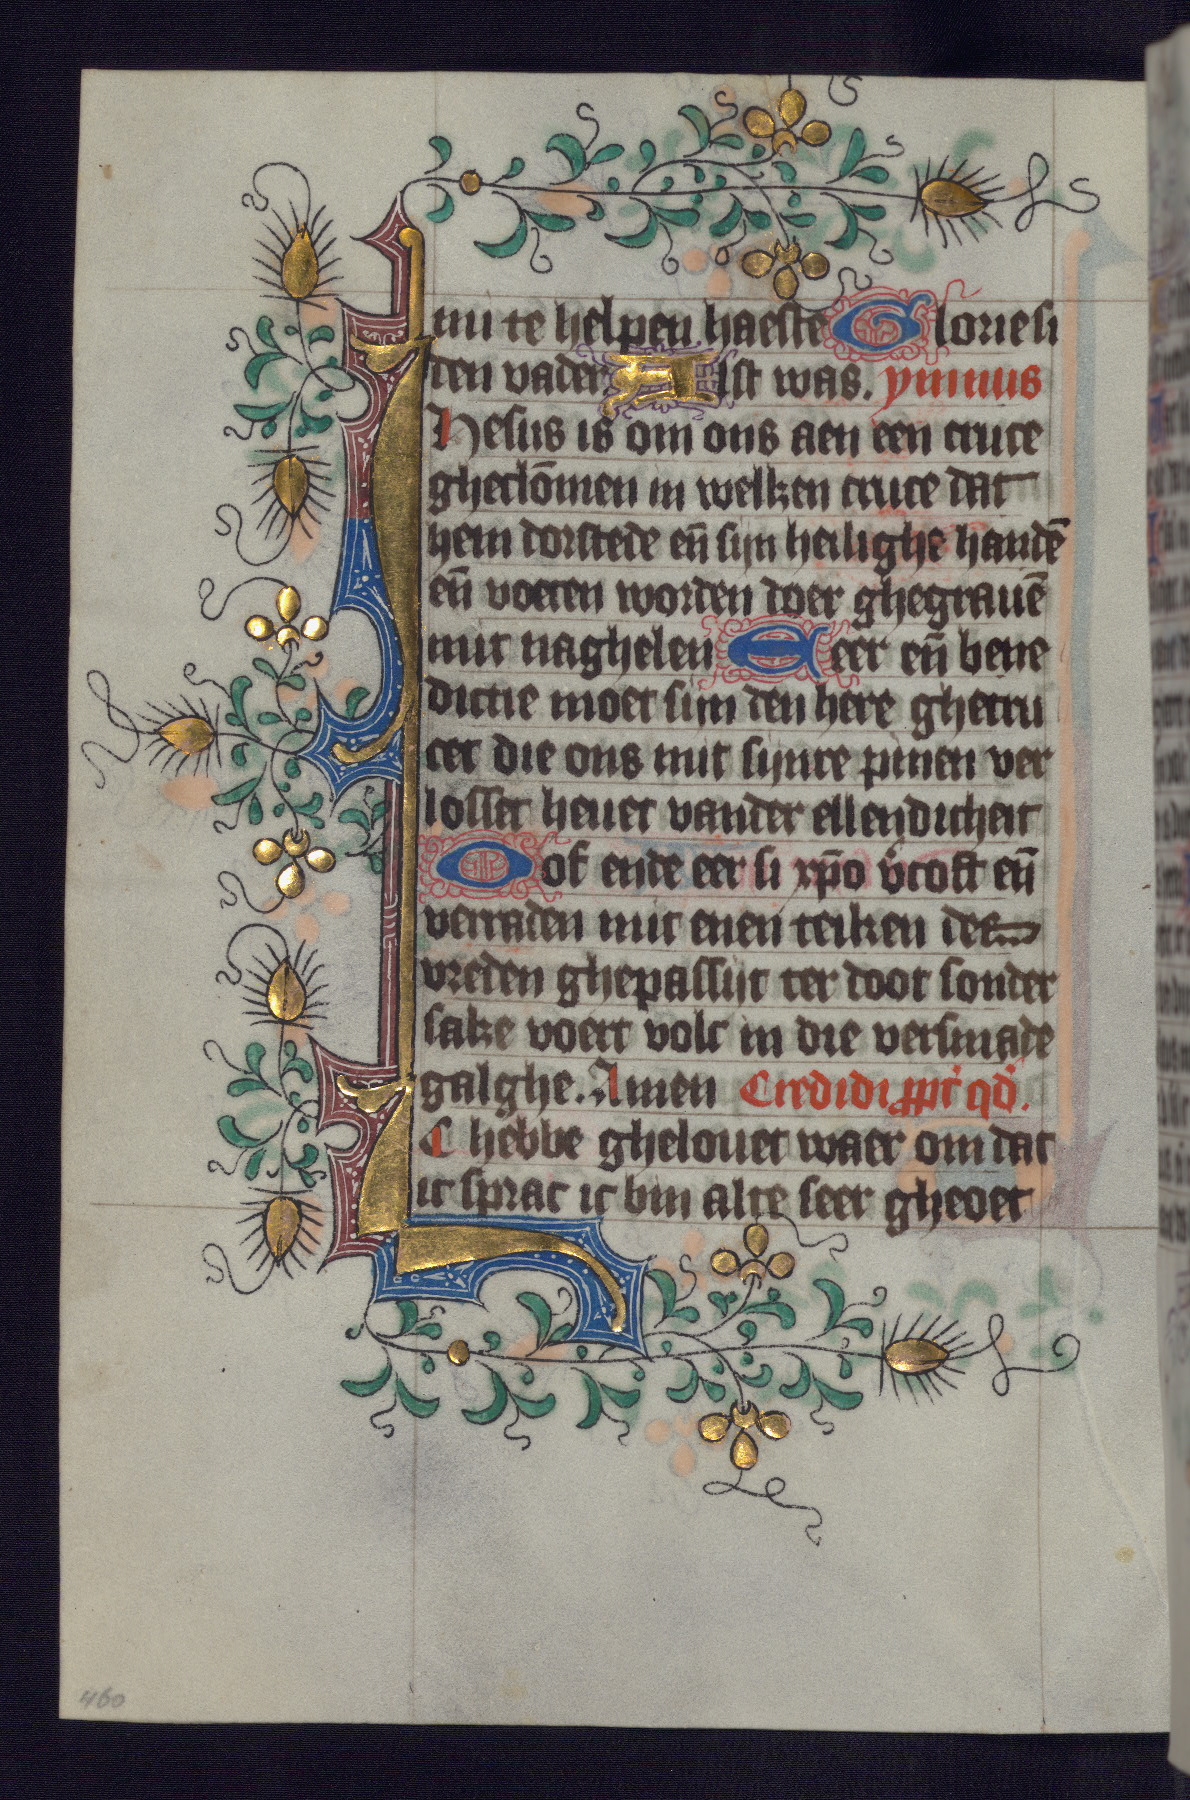 mi te helpen haeste Glorie si
den vader Alst was. ymnus
Jhesus is om ons aen een cruce
gheclōmen in welken cruce dat
hem dorstede eñ sijn heilighe handē
eñ voeten worden doer ghegrauē
mit naghelen Eeer eñ bene
dictie moet sijn den here ghecru
cet die ons mit sijnre pinen ver
losset heuet vander ellendicheit
Lof ende eer si xp̄o v̓coft eñ
verraden mit enen teiken des
vreden ghepassijt ter doot sonder
sake voert volc in die versmade
galghe. Amen Credidi ppt̓ qd̓.
Ic hebbe ghelouet waer om dat
ic sprac ic bin alte seer gheoet
460